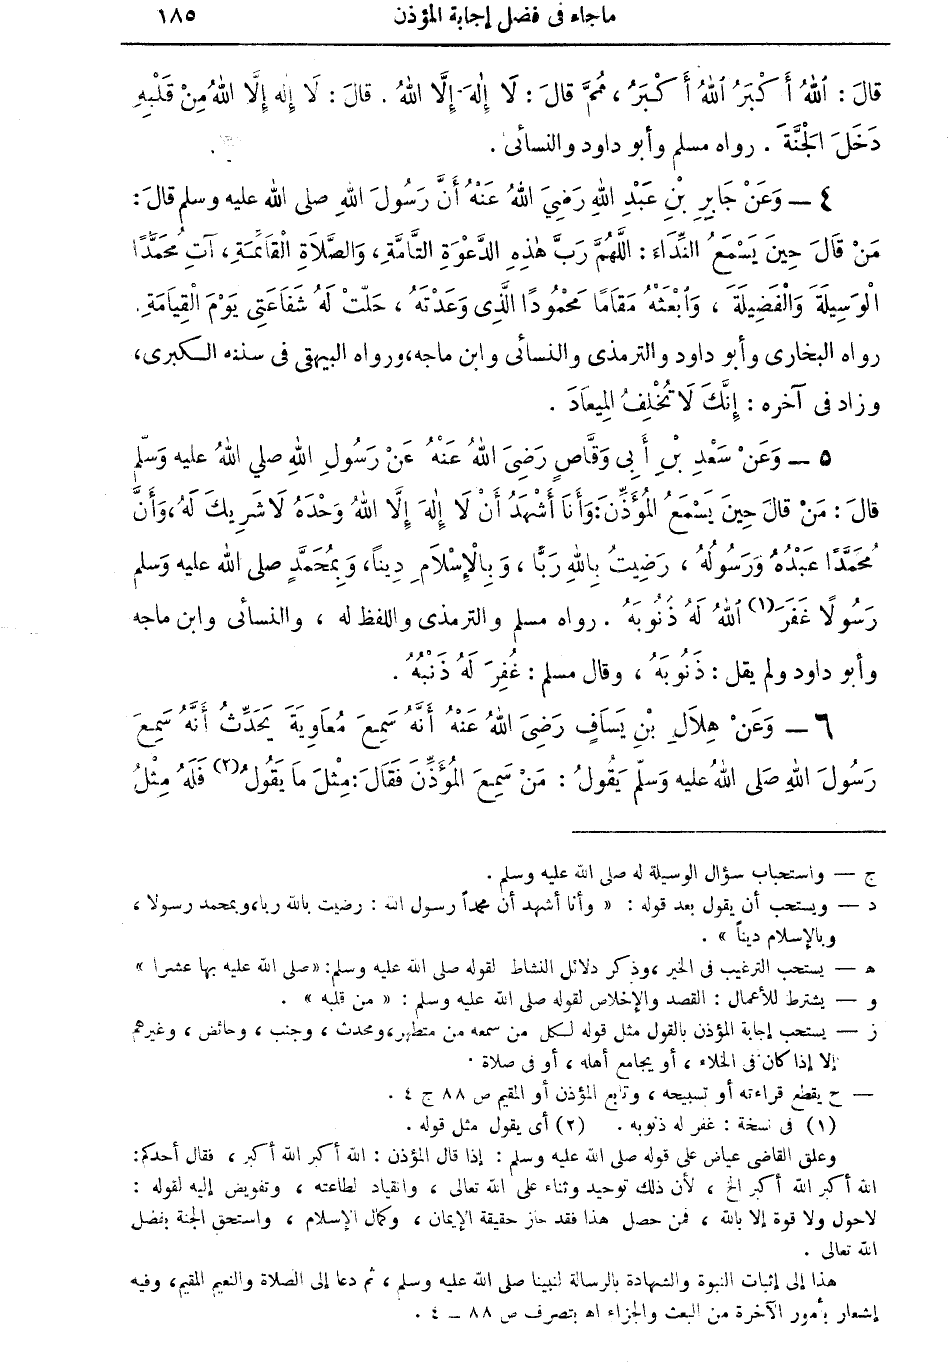 ماجاء فى فضل إجابة المؤذن ١٨٥
قالَ : اللهُ أَكْبَرُ اللهُ أَكْبَرُ ، ثُمَّ قالَ : لَا إِلٰهَ إِلَّا اللهُ . قالَ : لَا إِلهَ إِلَّا اللهُ مِنْ قَلْبِهِ
دَخَلَ الْجَنَّةَ . رواه مسلم وأبو داود والنسائى .
٤ — وَعَنْ جَابِرِ بْنِ عَبْدِ اللهِ رَضِيَ اللهُ عَنْهُ أَنَّ رَسُولَ اللهِ صلى الله عليه وسلم قالَ :
مَنْ قَالَ حِينَ يَسْمَعُ النِّدَاءَ : اللَّهُمَّ رَبَّ هٰذِهِ الدَّعْوَةِ التَّامَّةِ ، وَالصَّلَاةِ الْقَائِمَةِ ، آتِ مُحَمَّدًا
الْوَسِيلَةَ وَالْفَضِيلَةَ ، وَابْعَثْهُ مَقَامًا مَحْمُودًا الَّذِى وَعَدْتَهُ ، حَلَّتْ لَهُ شَفَاعَتِى يَوْمَ الْقِيَامَةِ .
رواه البخارى وأبو داود والترمذى والنسائى وابن ماجه ، ورواه البيهقى فى سننه الكبرى ،
وزاد فى آخره : إِنَّكَ لَا تُخْلِفُ الْمِيعَادَ .
٥ — وَعَنْ سَعْدِ بْنِ أَبِى وَقَّاصٍ رَضِىَ اللهُ عَنْهُ عَنْ رَسُولِ اللهِ صلي اللهُ عليه وَسَلَّم
قالَ : مَنْ قالَ حِينَ يَسْمَعُ المُؤَذِّنَ : وَأَنَا أَشْهَدُ أَنْ لَا إِلٰهَ إِلَّا اللهُ وَحْدَهُ لَا شَرِيكَ لَهُ ، وَأَنَّ
مُحَمَّدًا عَبْدُهُ وَرَسُولُهُ ، رَضِيتُ بِاللهِ رَبًّا ، وَبِالْإِسْلَامِ دِيناً ، وَبِمُحَمَّدٍ صلى الله عليه وَسَلم
رَسُولًا غَفَرَ (١) اللهُ لَهُ ذُنُوبَهُ . رواه مسلم والترمذى واللفظ له ، والنسائى وابن ماجه
وأبو داود ولم يقل : ذُنُوبَهُ ، وقال مسلم : غُفِرَ لَهُ ذَنْبُهُ .
٦ — وَعَنْ هِلَالِ بْنِ يَسَافٍ رَضِىَ اللهُ عَنْهُ أَنَّهُ سَمِعَ مُعَاوِيَةَ يُحَدِّثُ أَنَّهُ سَمِعَ
رَسُولَ اللهِ صَلى اللهُ عليه وَسَلّم يَقُولُ : مَنْ سَمِعَ المُؤَذِّنَ فَقَالَ : مِثْلَ مَا يَقُولُ (٢) فَلَهُ مِثْلُ
ج — واستحباب سؤال الوسيلة له صلى الله عليه وسلم .
د — ويستحب أن يقول بعد قوله : « وأنا أشهد أن محمداً رسول الله : رضيت بالله ربا ، وبمحمد رسولا ،
وبالإسلام ديناً » .
ه — يستحب الترغيب فى الخير ، وذكر دلائل النشاط لقوله صلى الله عليه وسلم : « صلى الله عليه بها عشرا »
و — يشترط للأعمال : القصد والإخلاص لقوله صلى الله عليه وسلم : « من قلبه » .
ز — يستحب إجابة المؤذن بالقول مثل قوله لكل من سمعه من متطهر ، ومحدث ، وجنب ، وحائض ، وغيرهم
إلا إذا كان فى الخلاء ، أو يجامع أهله ، أو فى صلاة .
— ح يقطع قراءته أو تسبيحه ، وتابع المؤذن أو المقيم ص ٨٨ ج ٤ .
(١) فى نسخة : غفر له ذنوبه . (٢) أى يقول مثل قوله .
وعلق القاضى عياض على قوله صلى الله عليه وسلم : إذا قال المؤذن : الله أكبر الله أكبر ، فقال أحدكم :
الله أكبر الله أكبر الخ ، لأن ذلك توحيد وثناء على الله تعالى ، وانقياد لطاعته ، وتفويض إليه لقوله :
لاحول ولا قوة إلا بالله ، فمن حصل هذا فقد حاز حقيقة الإيمان ، وكمال الإسلام ، واستحق الجنة بفضل
الله تعالى .
هذا إلى إثبات النبوة والشهادة بالرسالة لنبينا صلى الله عليه وسلم ، ثم دعا إلى الصلاة والنعيم المقيم ، وفيه
إشعار بأمور الآخرة من البعث والجزاء اه بتصرف ص ٨٨ — ٤ .